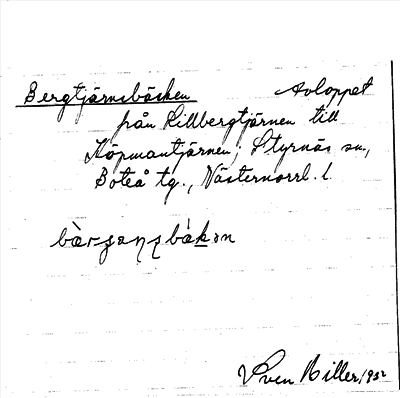 Bergtjärnsbäcken Avloppet
från Lillbergtjärnen till
Köpmantjärnen; Styrnäs sn,
Boteå tg., Västernorrl. l.
Sven Hiller, 1932